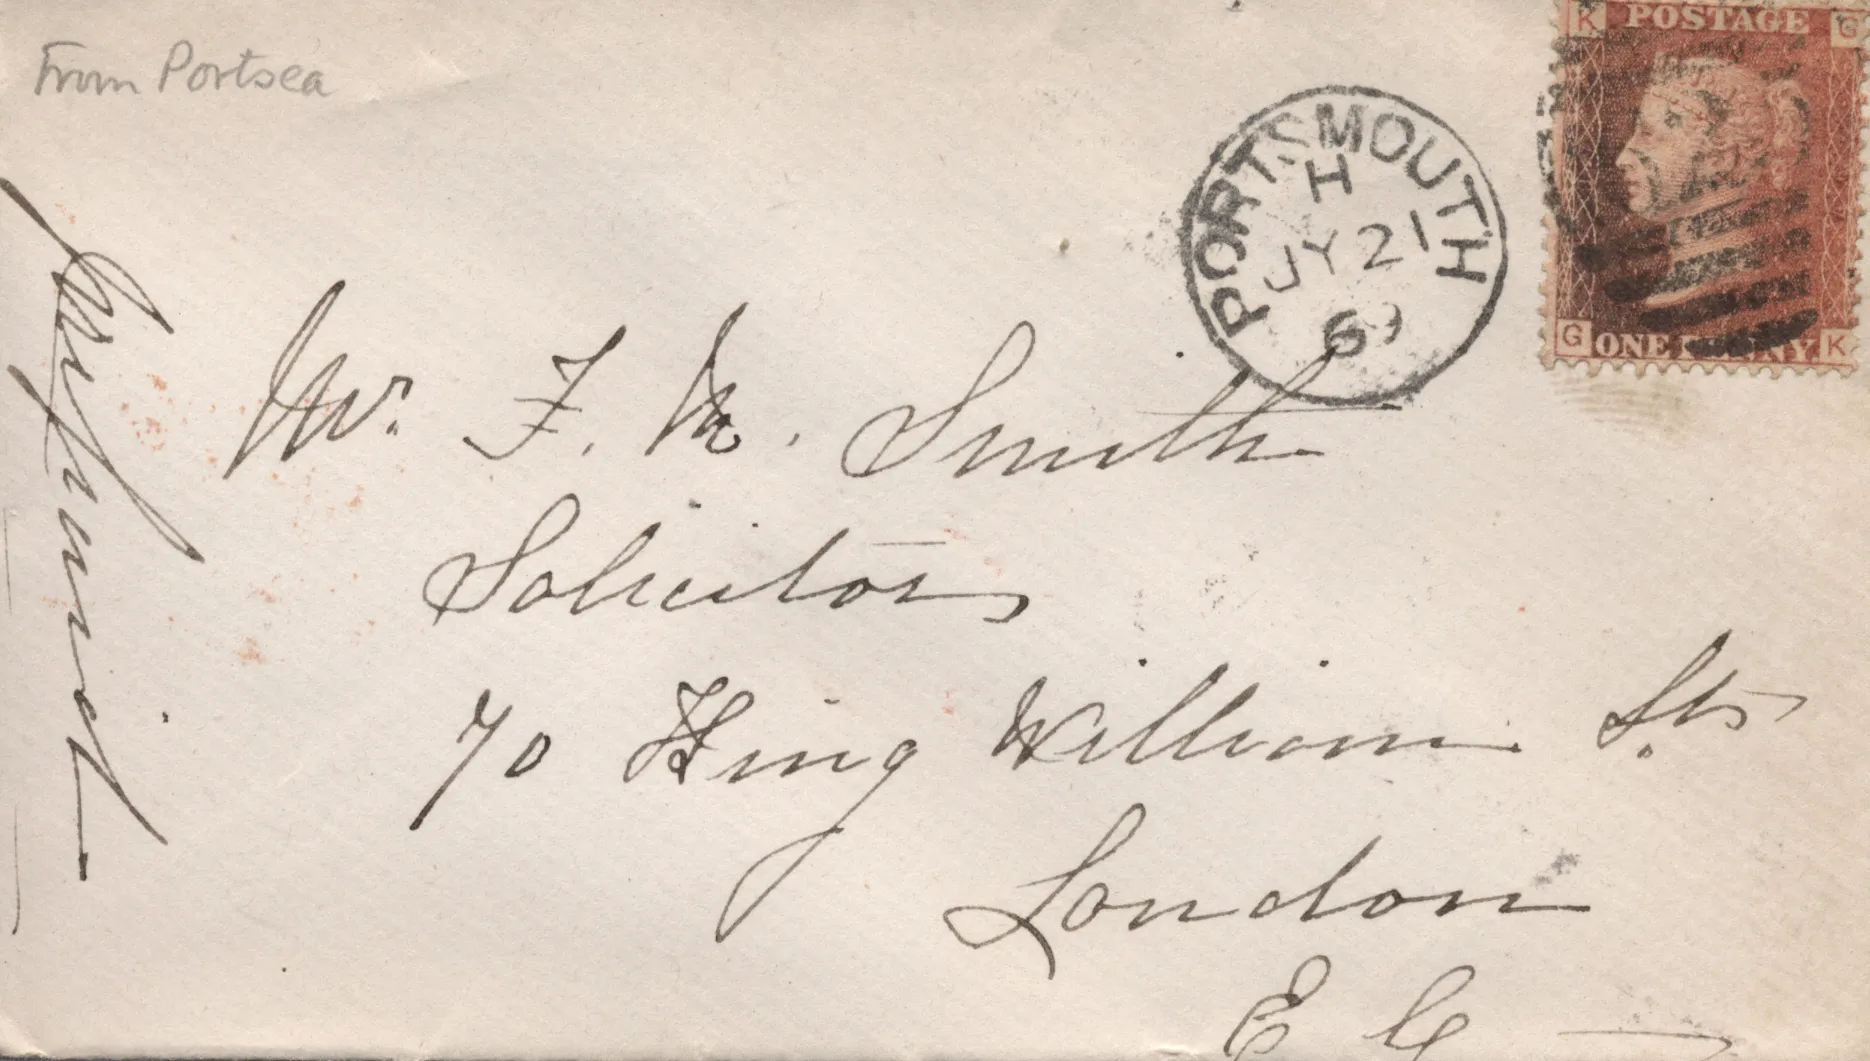 From Portsea
K POSTAGE G
PORTSMOUTH
H
JY 21
69
G ONE PENNY K
Mr. F. M. Smith
Solicitor
70 King William St.
London
E C